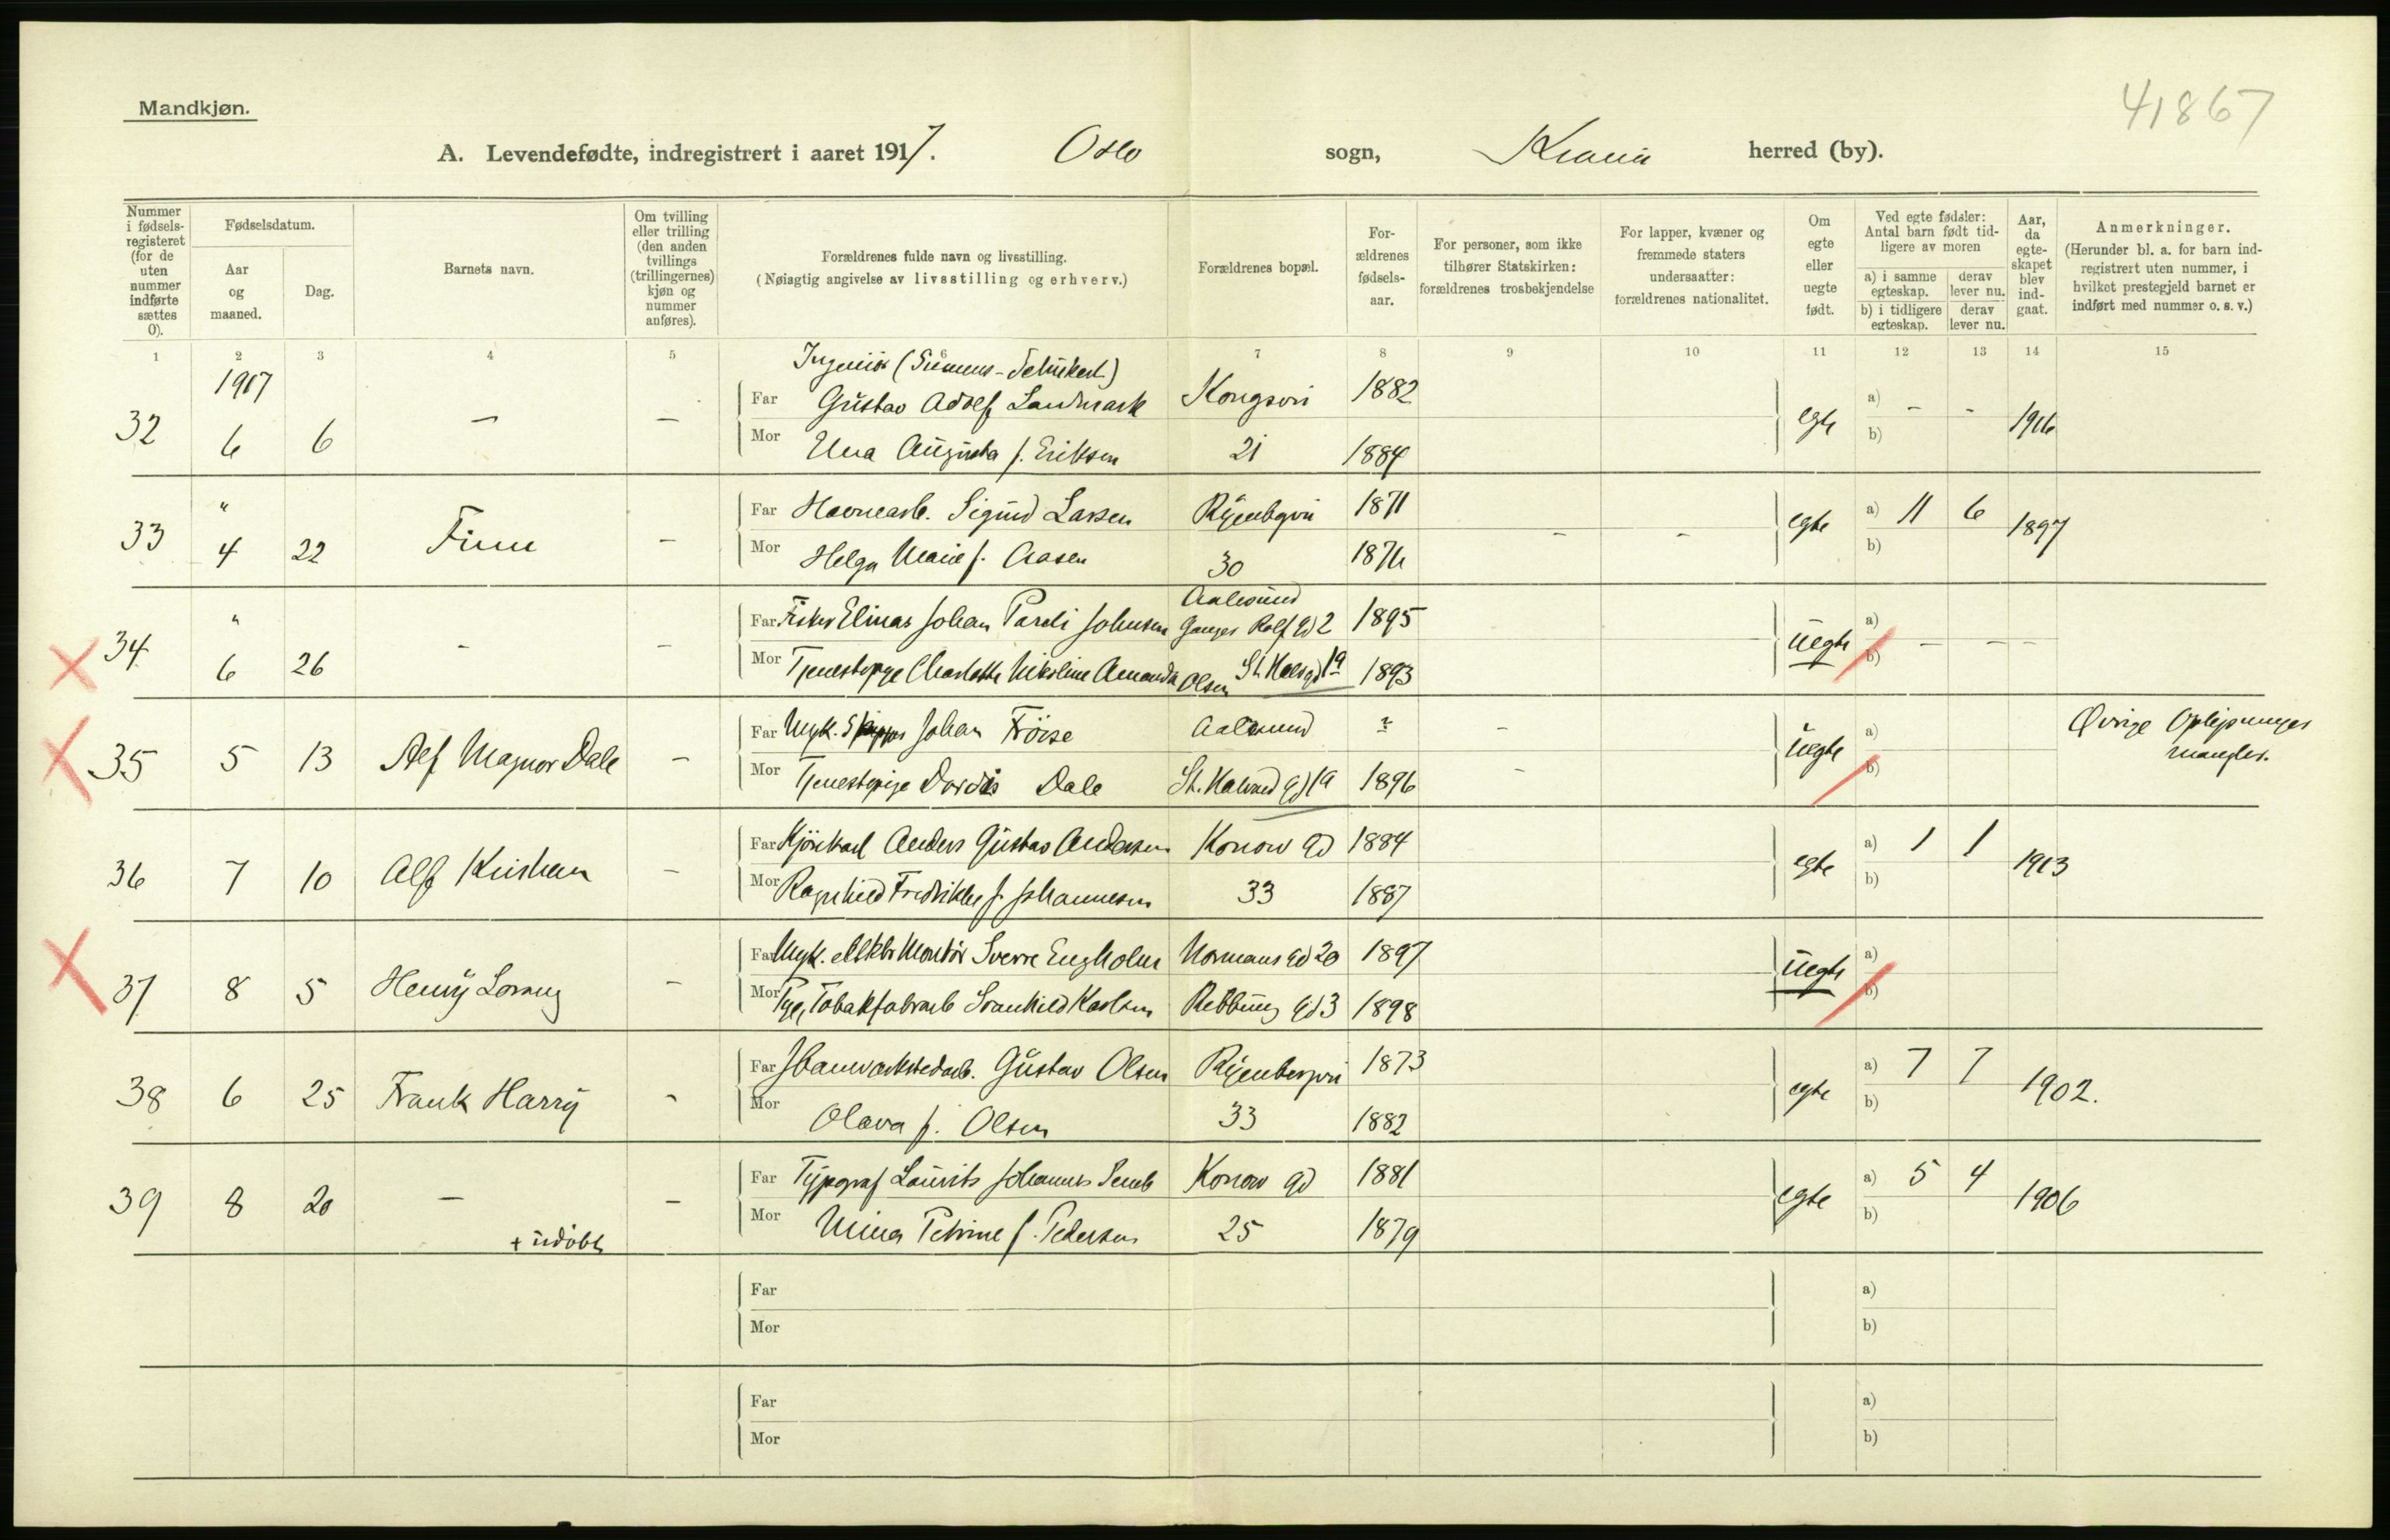 Mandkjøn.
41867
A. Levendefødte, indregistrert i aaret 1917. Oslo sogn, Krania herred (by).
Nummer i fødsels-registeret (for de uten nummer indførte sættes 0).
Fødselsdatum.
Aar og maaned.
Dag.
Barnets navn.
Om tvilling eller trilling (den anden tvillings (trillingernes) kjøn og nummer anføres).
Forældrenes fulde navn og livsstilling.
(Nøiagtig angivelse av livsstilling og erhverv.)
Forældrenes bopæl.
For-ældrenes fødsels-aar.
For personer, som ikke tilhører Statskirken: forældrenes trosbekjendelse
For lapper, kvæner og fremmede staters undersaatter: forældrenes nationalitet.
Om egte eller uegte født.
Ved egte fødsler: Antal barn født tid-ligere av moren
a) i samme egteskap. derav lever nu.
b) i tidligere egteskap. derav lever nu.
Aar, da egte-skapet blev ind-gaat.
Anmerkninger.
(Herunder bl. a. for barn ind-registrert uten nummer, i hvilket prestegjeld barnet er indført med nummer o. s. v.)
1 2 3 4 5 6 7 8 9 10 11 12 13 14 15
1917 Ingeniör (Siemens-Schukert)
32 6 6 – – Far Gustav Adolf Landmark Kongsvn 1882 egte a) – - 1916
Mor Una Augusta f. Eriksen 21 1884 b)
33 " 4 22 Finn – Far Havnearb. Sigurd Larsen Ryenbgvn 1871 - - egte a) 11 6 1897
Mor Helga Marie f. Aasen 30 1876 b)
34 " 6 26 - - Far Fisker Elinar Johan Pareli Johnsen Aalesund Ganger Rolf Gd 2 1895 uegte a) – – –
Mor Tjenestepige Charlotte Nikoline Amanda Olsen St. Halvgd 1a 1893 b)
35 5 13 Alf Magnor Dale – Far Ugk. Skipper Johan Fröise Aalesund ? - uegte a) Øvrige Oplysninger mangler.
Mor Tjenestepige Dordis Dale St. Halvard Gd 1a 1896 - b)
36 7 10 Alf Kristian – Far Kjörekarl Anders Gustav Andersen Konow Gd 1884 egte a) 1 1 1913
Mor Ragnhild Fredrikke f. Johannesen 33 1887 b)
37 8 5 Henry Lorang – Far Ugk. elektr Montör Sverre Engholm Normans Gd 20 1897 uegte a)
Mor Pge, Tobakfabrarb Svanhild Karlsen Rebbing Gd 3 1898 b)
38 6 25 Frank Harry - Far Jbanverkstedarb. Gustav Olsen Ryenbergvn 1873 egte a) 7 7 1902.
Mor Olava f. Olsen 33 1882 b)
39 8 20 – – Far Typograf Laurits Johannes Semb Konow Gd 1881 egte a) 5 4 1906
+ udöbt Mor Mina Petrine f. Pedersen 25 1879 b)
Far a)
Mor b)
Far a)
Mor b)